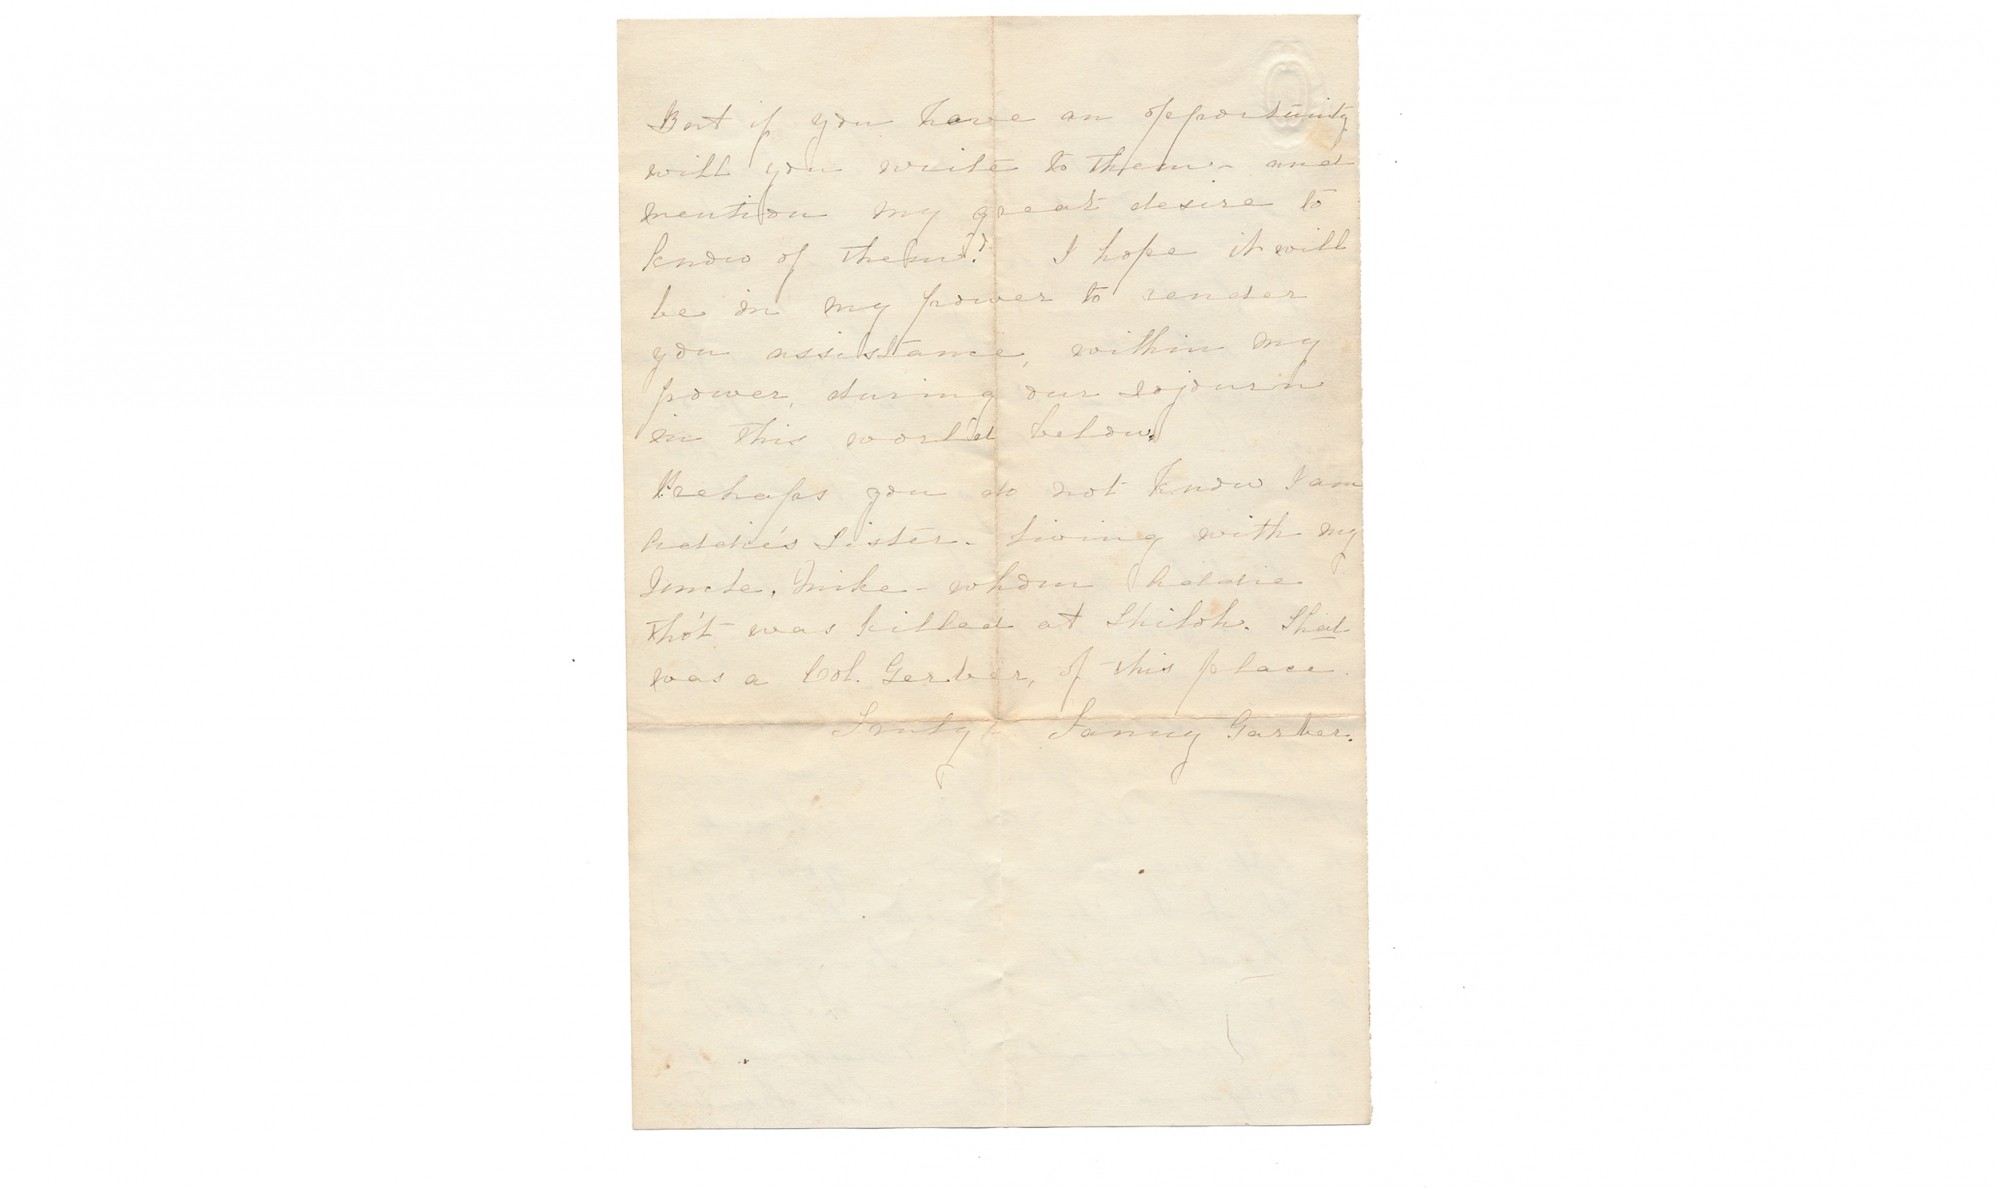 But if you have an opportunity
will you write to them - and
mention my great desire to
know of them? I hope it will
be in my power to render
you assistance, within my
power, during our sojourn
in this world below.
Perhaps you do not know I am
Addie's Sister - living with my
Uncle, Mike - whom Addie
tho't was killed at Shiloh. That
was a Col. Gerber, of this place.
Truly - Fanny Garber.